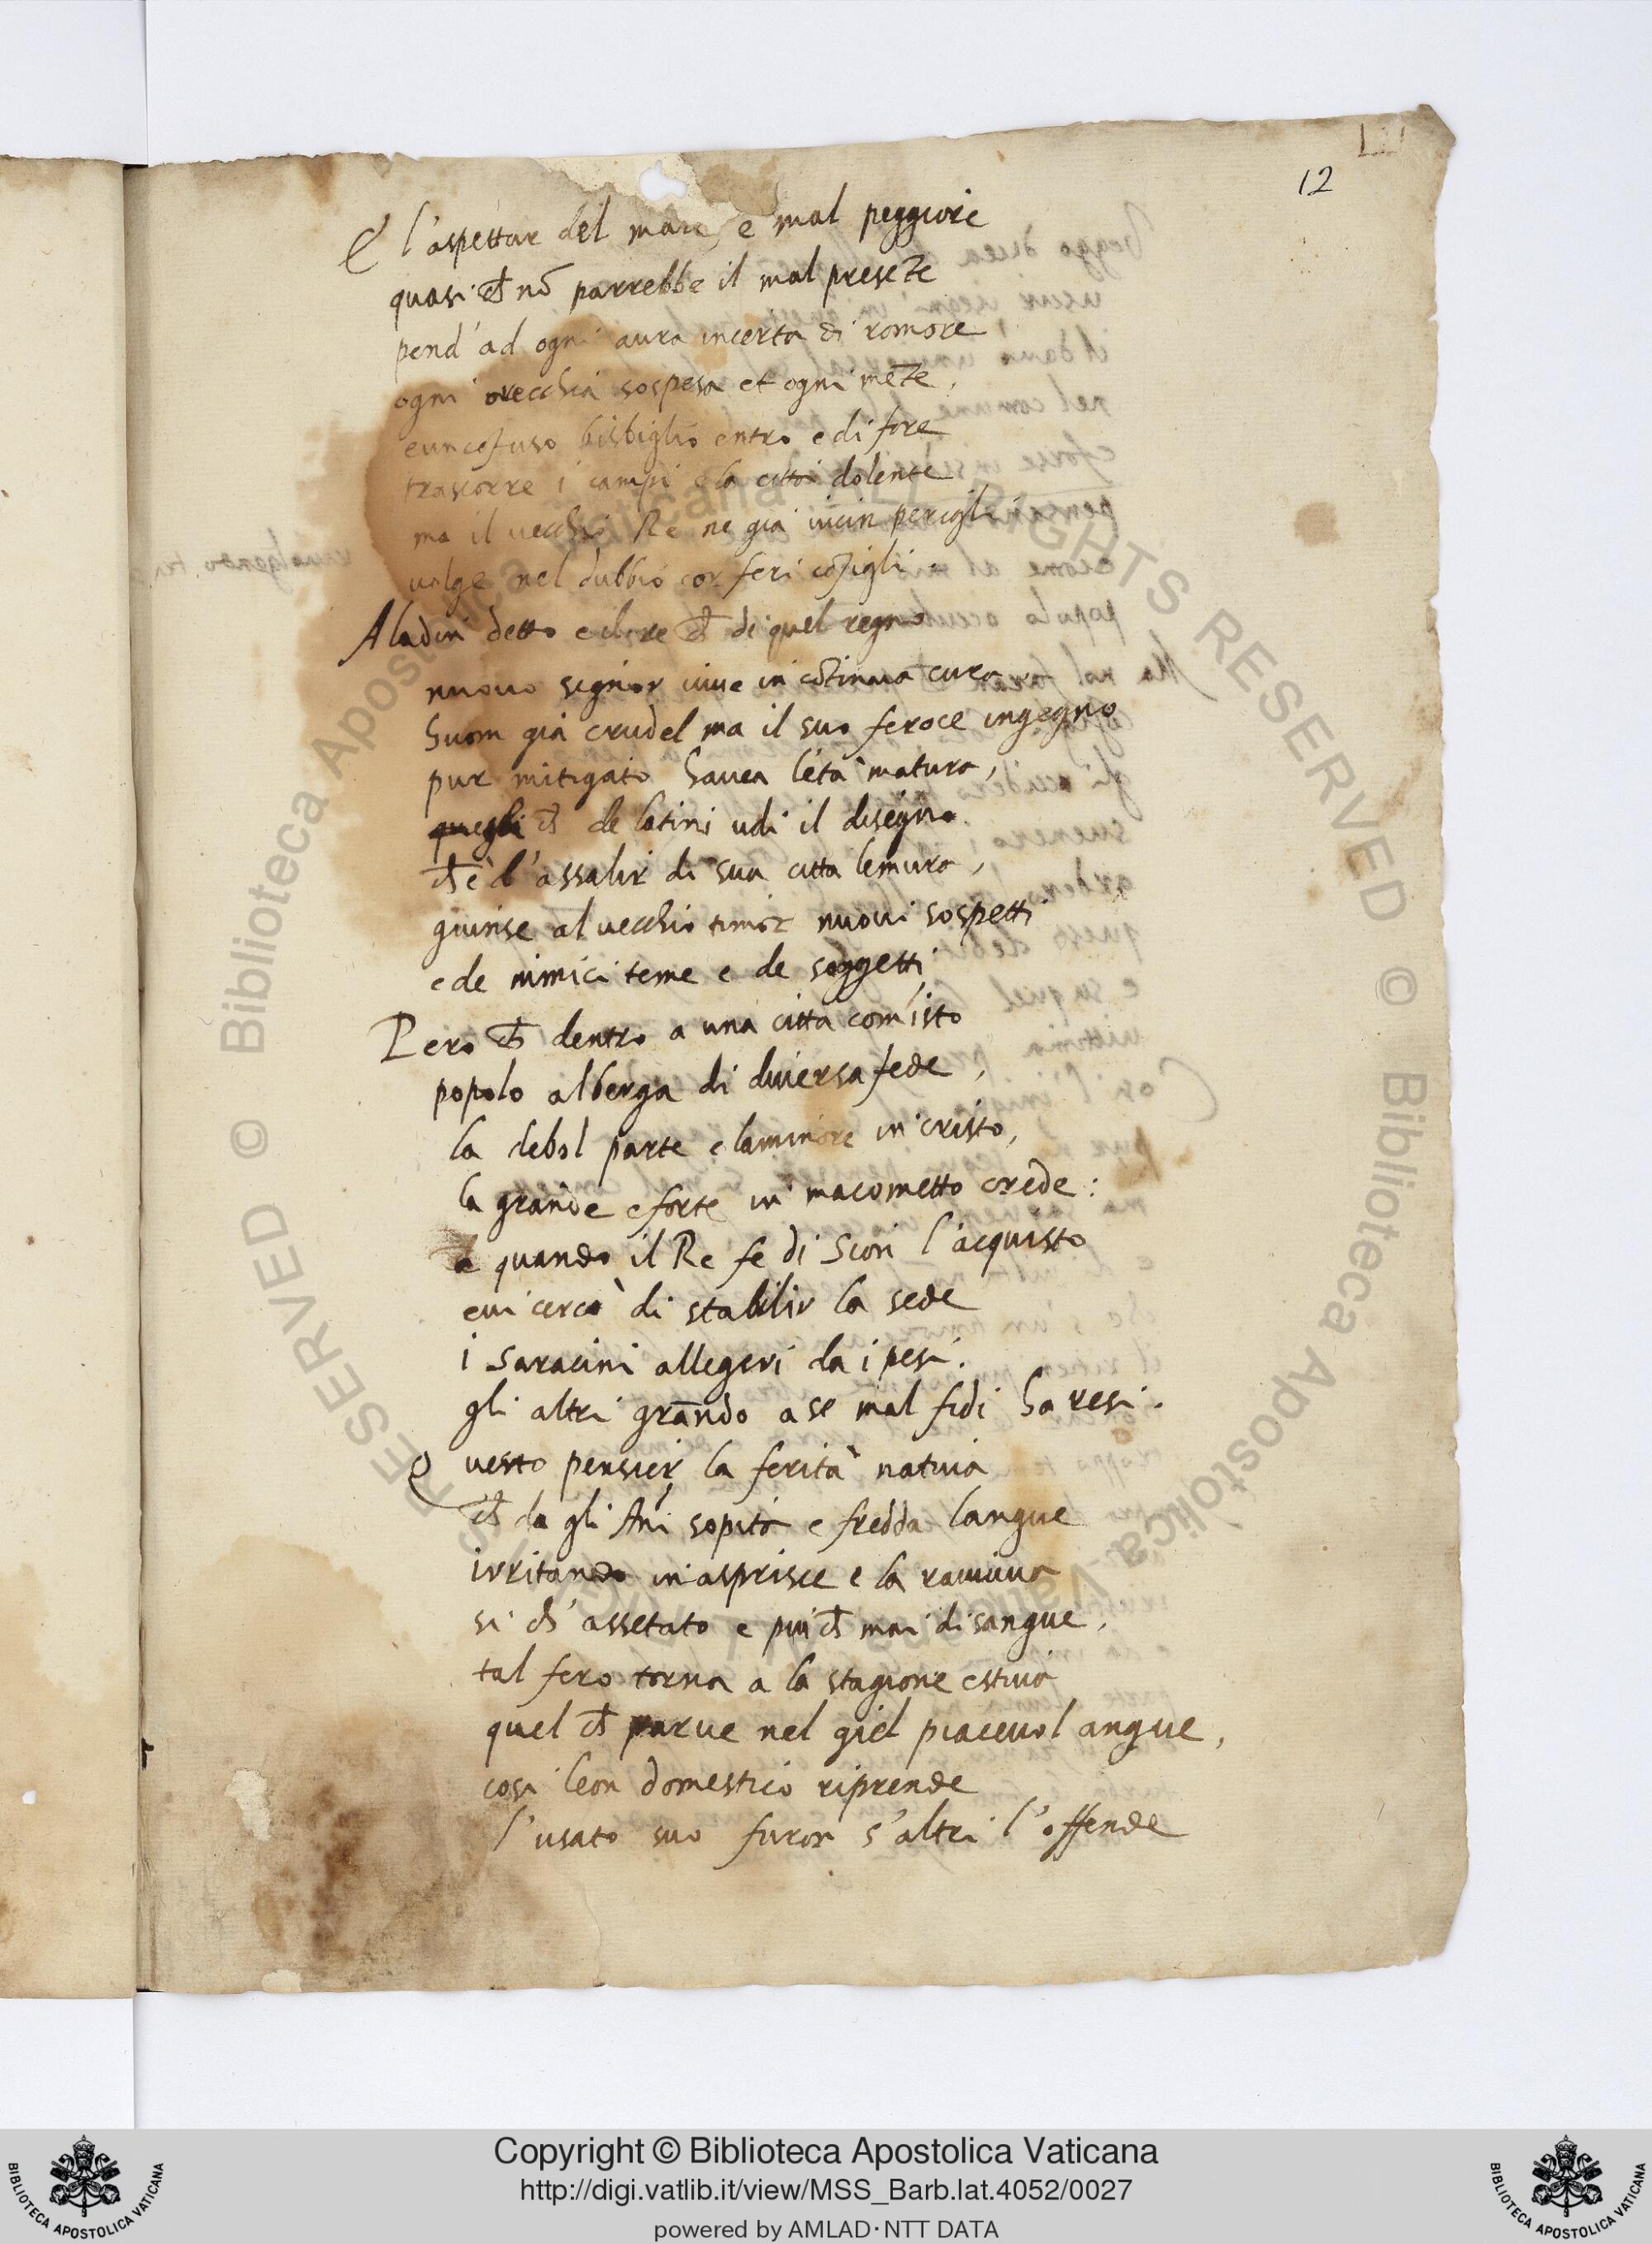 12
E l'aspettar del mare, e mal peggiore
quasi ch̄ nō parrebbe il mal presēte
pend'ad ogni aura incerta di romore
ogni orecchia sospesa et ogni mēte,
e un cōfuso bisbiglio entro e di fore
trascorre i campi e la città dolente
ma il vecchio Re ne già vicin perigli
volge nel dubbio cor feri cōsigli.
Aladin detto e il re ch̄ di quel regno
nuovo signor vive in cōtinua cura
huom già crudel ma il suo feroce ingegno
pur mitigato havea l'età matura,
quegli ch̄ de latini udi il disegno
ch̄ è d'assalir di sua citta le mura,
giunse al vecchio timor nuovi sospetti
e de nimici teme e de soggetti
Pero ch̄ dentro a una citta comīsto
popolo alberga di diversa fede,
la debol parte e la minore in cristo,
la grande e forte in macometto crede:
e quando il Re fe di Scion l'acquisto
e vi cercò di stabilir la sede
i Saracini allegeri da i pesi.
gli altri grāndo a se mal fidi ha resi.
Q uesto pensier la ferità nativa
ch̄ da gli Anī sopita e fredda langue
irritando inasprisce e la ravviva
si ch' assetato e più ch̄ mai di sangue,
tal fero torna a la stagione estiva
quel ch̄ parve nel giel piacevol angue,
cosi leon domestico riprende
l'usato suo furor s'altri l'offende
© Biblioteca Apostolica Vaticana ALL RIGHTS RESERVED
Copyright © Biblioteca Apostolica Vaticana
http://digi.vatlib.it/view/MSS_Barb.lat.4052/0027
powered by AMLAD·NTT DATA
BIBLIOTECA APOSTOLICA VATICANA
BIBLIOTECA APOSTOLICA VATICANA